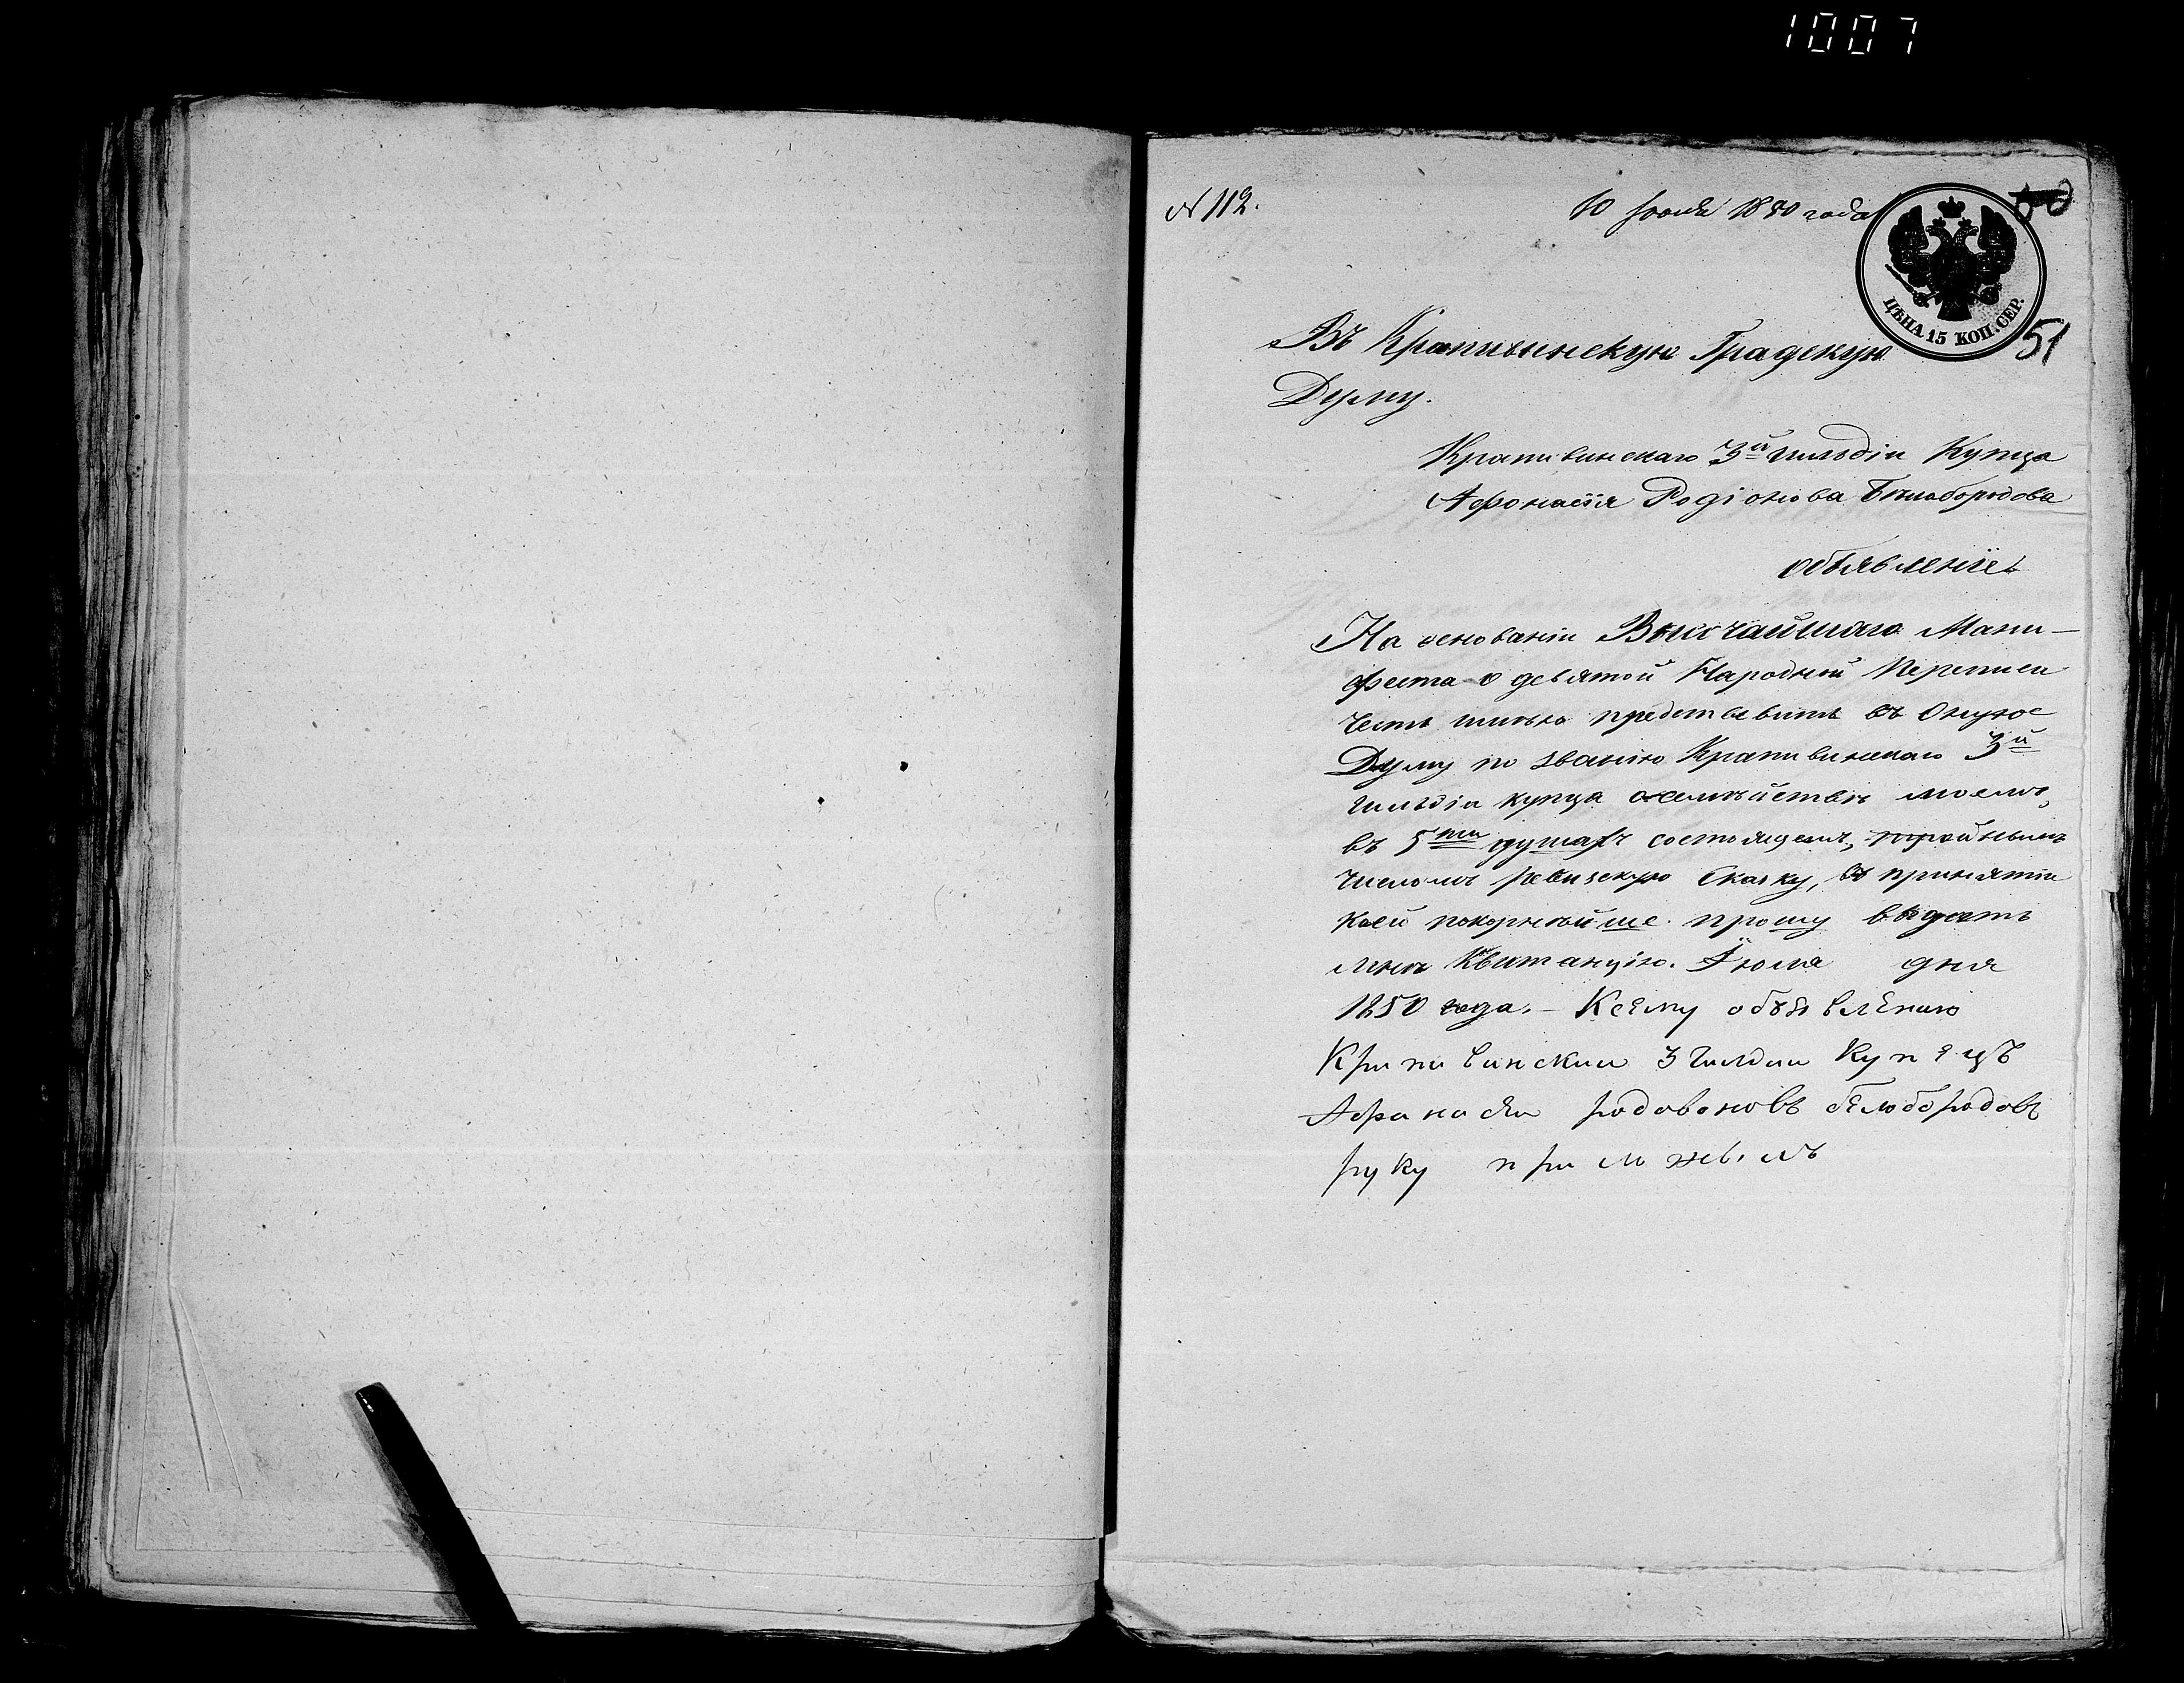 1007
№ 112.
10 Іюля 1850 года
50
ЦѢНА 15 КОП. СЕР.
51
Въ Крапивенскую Градскую
Думу.
Крапивинскаго 3й гильдіи Купца
Афонасія Родіонова Бѣлобородова
объявленіе
На основаніи Высочайшаго Мани-
феста о девятой Народной Переписи
честь имѣю представить въ Оную
Думу по званію Крапивинскаго 3й
гильдіи купца о семѣйствѣ моемъ,
въ 5ти душахъ состоящемъ, тройнымъ
числомъ ревизскую Сказку, въ принятіи
коей покорнѣйше прошу выдать
мнѣ Квитанцію. Іюля дня
1850 года. – Ксему объявлению
Крапивинскии 3 гилдии Купецъ
Афанасеи родовоновъ белобородовъ
руку приложилъ